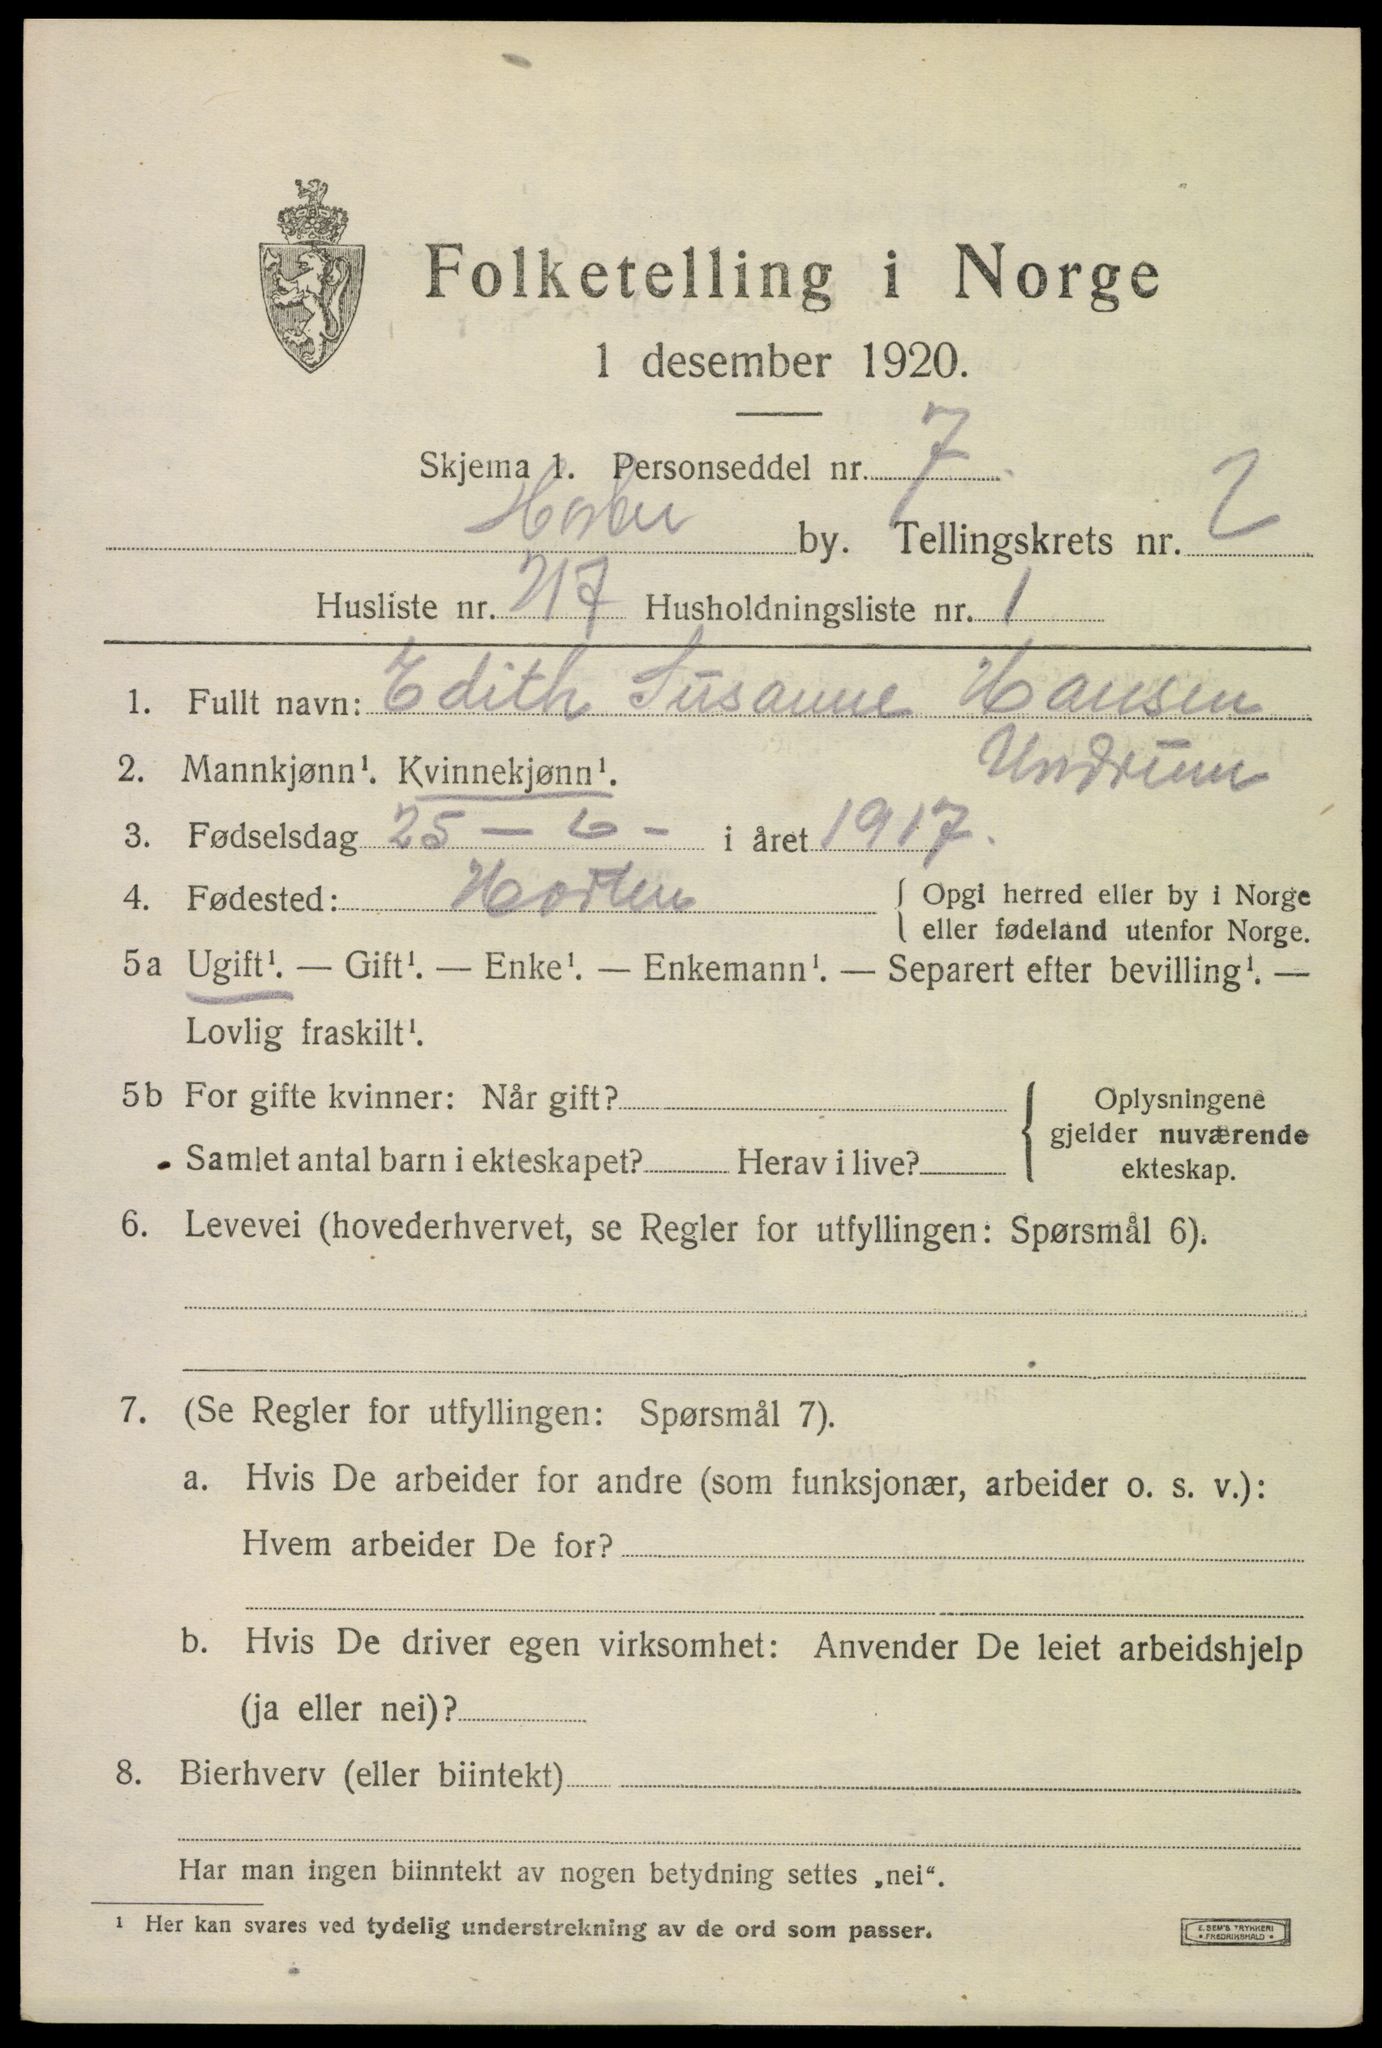 Folketelling i Norge
1 desember 1920.
Skjema 1. Personseddel nr. 7
Horten by. Tellingskrets nr. 2
Husliste nr. 217 Husholdningsliste nr. 1
1. Fullt navn: Edith Susanne Hansen
Undrum
2. Mannkjønn¹. Kvinnekjønn¹.
3. Fødselsdag 25 - 6 - i året 1917.
4. Fødested: Horten { Opgi herred eller by i Norge
eller fødeland utenfor Norge.
5a Ugift¹. — Gift¹. — Enke¹. — Enkemann¹. — Separert efter bevilling¹. —
Lovlig fraskilt¹.
5b For gifte kvinner: Når gift?
Samlet antal barn i ekteskapet? Herav i live?
{ Oplysningene
gjelder nuværende
ekteskap.
6. Levevei (hovederhvervet, se Regler for utfyllingen: Spørsmål 6).
7. (Se Regler for utfyllingen: Spørsmål 7).
a. Hvis De arbeider for andre (som funksjonær, arbeider o. s. v.):
Hvem arbeider De for?
b. Hvis De driver egen virksomhet: Anvender De leiet arbeidshjelp
(ja eller nei)?
8. Bierhverv (eller biintekt)
Har man ingen biinntekt av nogen betydning settes „nei“.
¹ Her kan svares ved tydelig understrekning av de ord som passer.
E. SEM'S TRYKKERI
• FREDRIKSHALD •